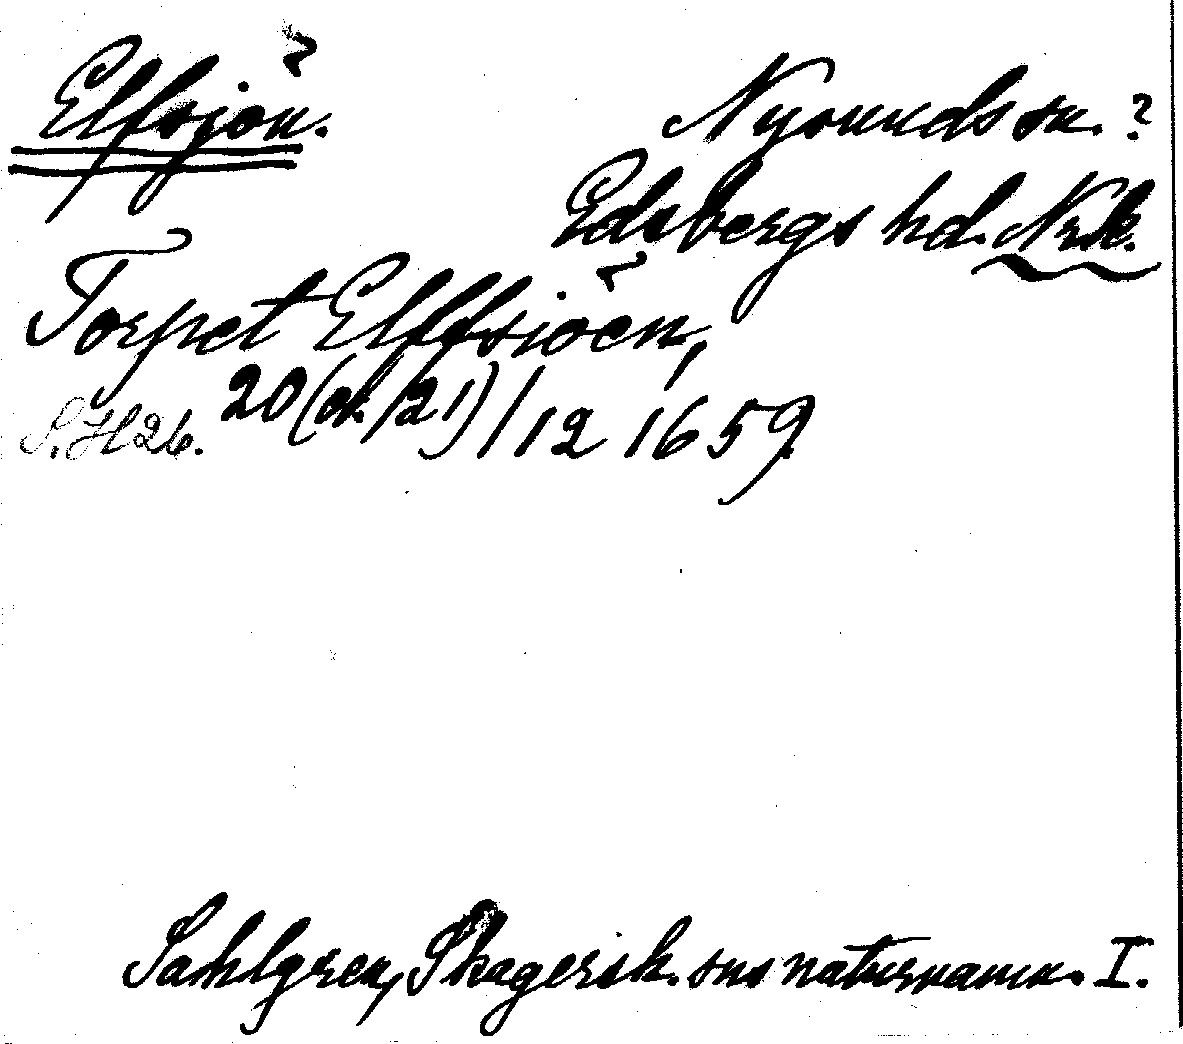 Elfsjön.
Nysunds sn. ?
Edsbergs hd. Nrk.
Torpet Elffsiöen,
S. H 26. 20 (ok 21)/12 1659.
Sahlgren, Skagersh. sns naturnamn. I.